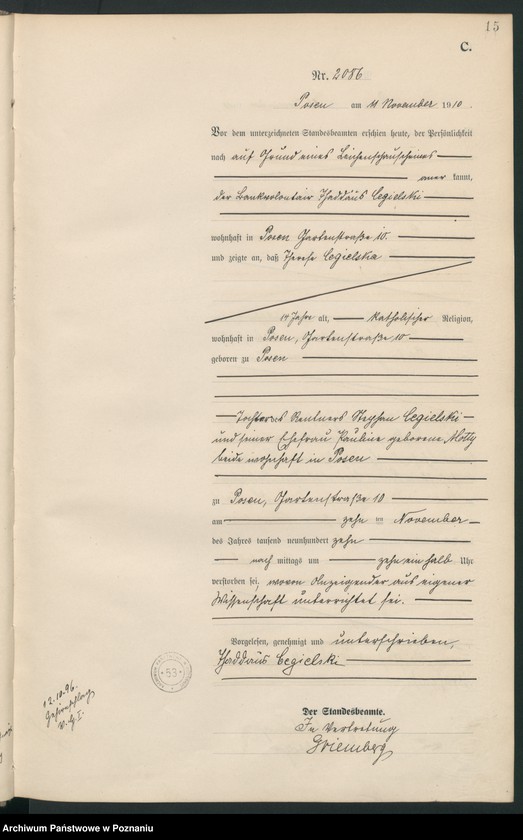 15
C.
Nr. 2086
Posen am 11 November 1910.
Vor dem unterzeichneten Standesbeamten erschien heute, der Persönlichkeit
nach auf Grund eines Leichenschauscheines
aner kannt,
der Bankvolontair Thaddäus Cegielski
wohnhaft in Posen Gartenstraße 10.
und zeigte an, daß Therese Cegielska
14 Jahre alt, katholischer Religion,
wohnhaft in Posen, Gartenstraße 10
geboren zu Posen
Tochter des Rentners Stephan Cegielski
und seiner Ehefrau Pauline geborene Motty
beide wohnhaft in Posen
zu Posen, Gartenstraße 10
am zehn ten November
des Jahres tausend neunhundert zehn
nach mittags um zehn ein halb Uhr
verstorben sei, wovon Anzeigender aus eigener
Wissenschaft unterrichtet sei.
Vorgelesen, genehmigt und unterschrieben,
Thaddäus Cegielski
53
12.10.96.
Der Standesbeamte.
In Vertretung
Griemberg
Archiwum Państwowe w Poznaniu